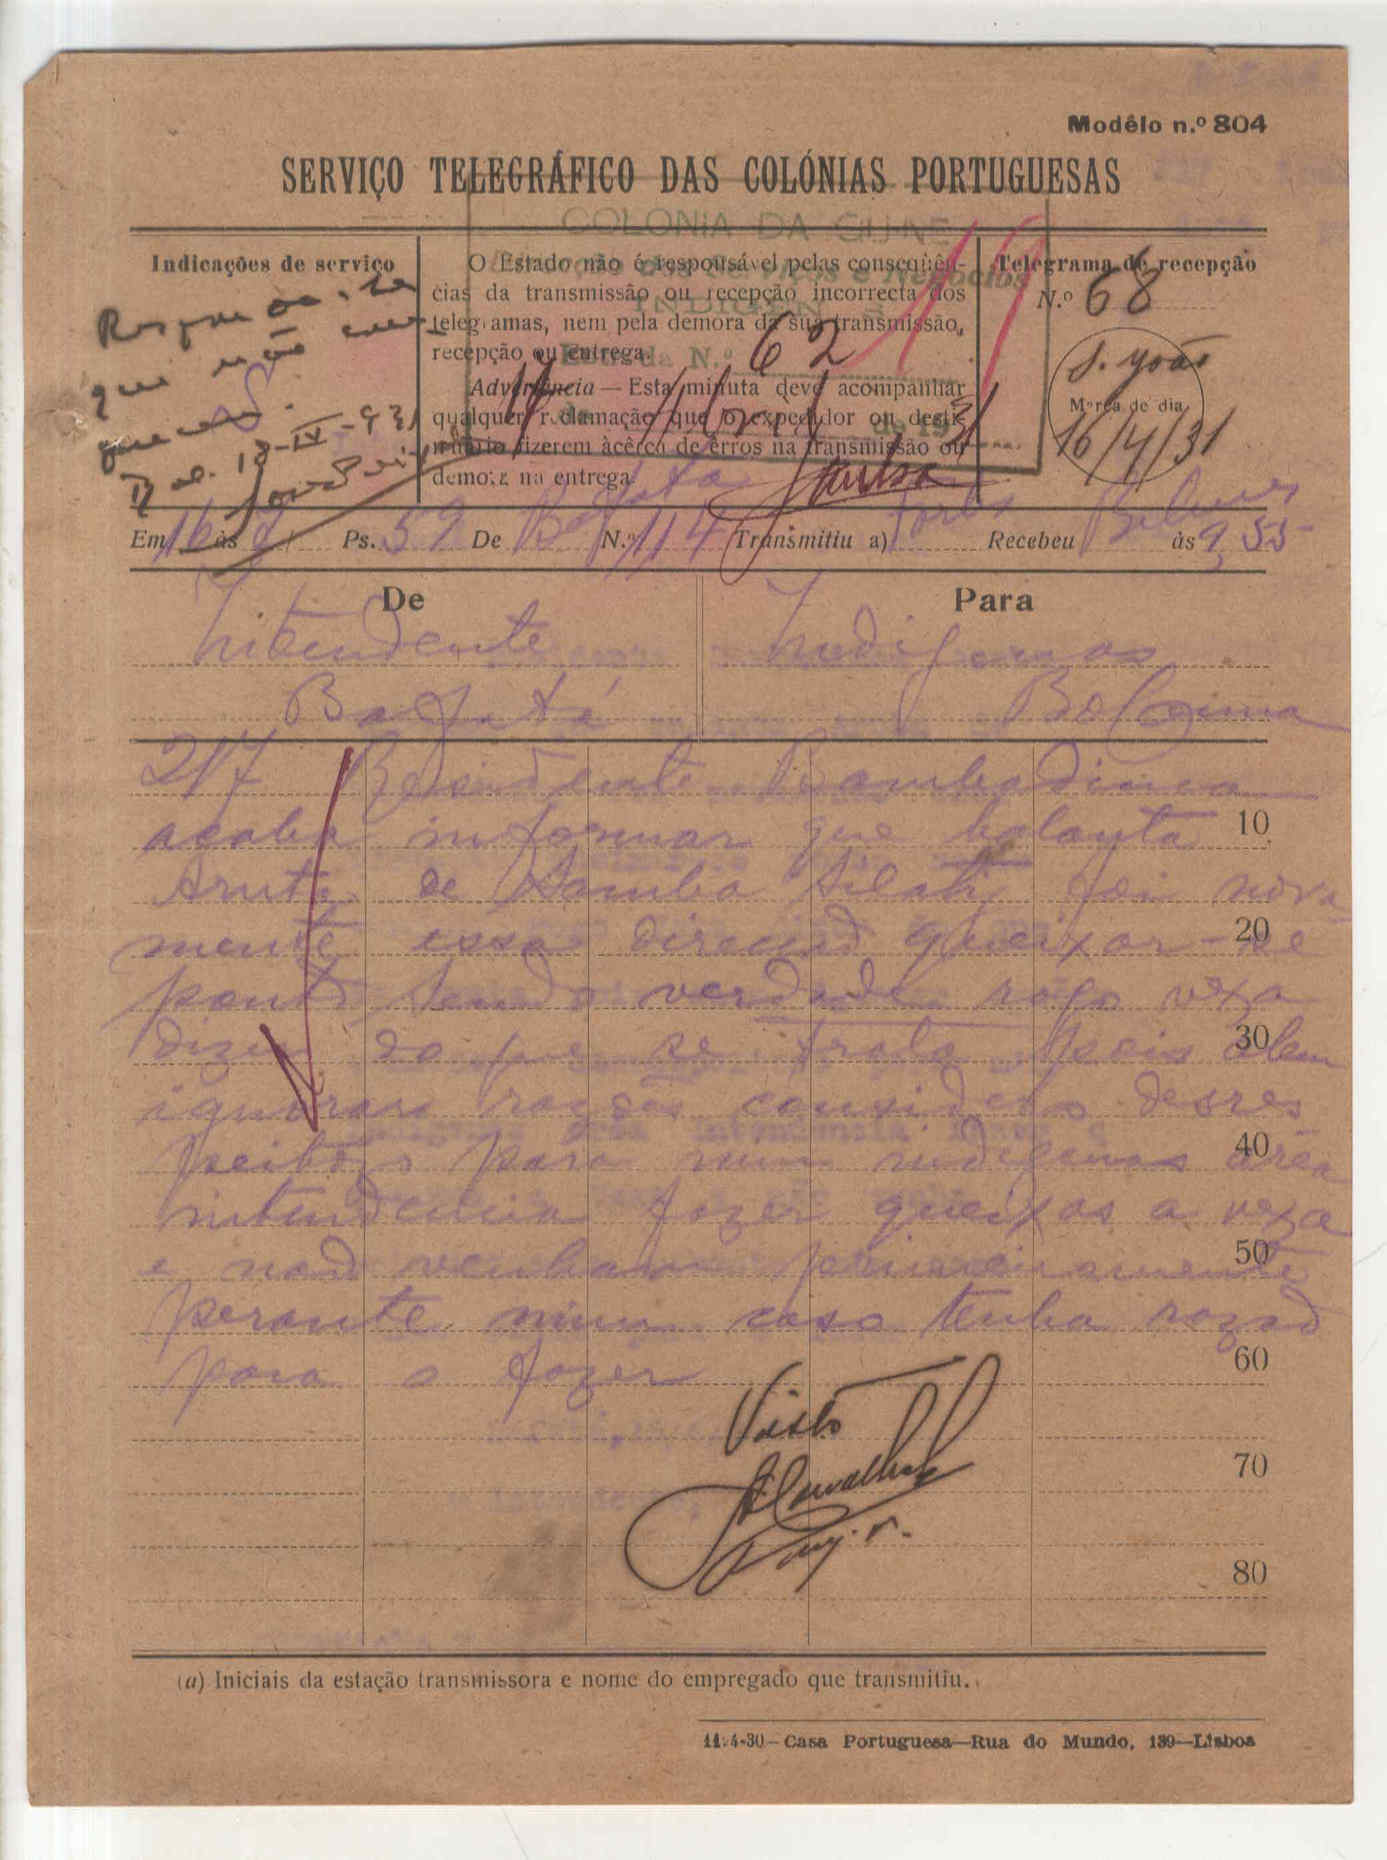 Modêlo n.º 804
SERVIÇO TELEGRÁFICO DAS COLÓNIAS PORTUGUESAS
COLONIA DA GUINE
e Negocios
INDIGENAS
Entrada N.º 62
17 Abril de 1931
Indicações de serviço
que não
O Estado não é responsável pelas conseqüên-
cias da transmissão ou recepção incorrecta dos
telegramas, nem pela demora da sua transmissão,
recepção ou entrega.
Advertência — Esta minuta deve acompanhar
qualquer reclamação que o expedidor ou desti-
natário fizerem àcêrca de erros na transmissão ou
demora na entrega.
Telegrama de recepção
N.º 68
S. João
Marca de dia
16/4/31
Em 16 às Ps. 59 De Bafatá N.º 114 Transmitiu a) Recebeu às 9,55
De
Para
Intendente
Indigenas
Bafatá
Bolama
217 Residente Bambadinca
acaba informar que balanta
de Samba Silati foi nova-
mente essa direcção queixar-se
ponto sendo verdade rogo vexa
dizer do que se trata pois alem
ignorar razões considero desres
peitoso para mim indigenas area
intendencia fazer queixas a vexa
e não venham primeiramente
perante mim caso tenha razão
para o fazer
10
20
30
40
50
60
70
80
Visto
(a) Iniciais da estação transmissora e nome do empregado que transmitiu.
11-4-30—Casa Portuguesa—Rua do Mundo, 139—Lisboa